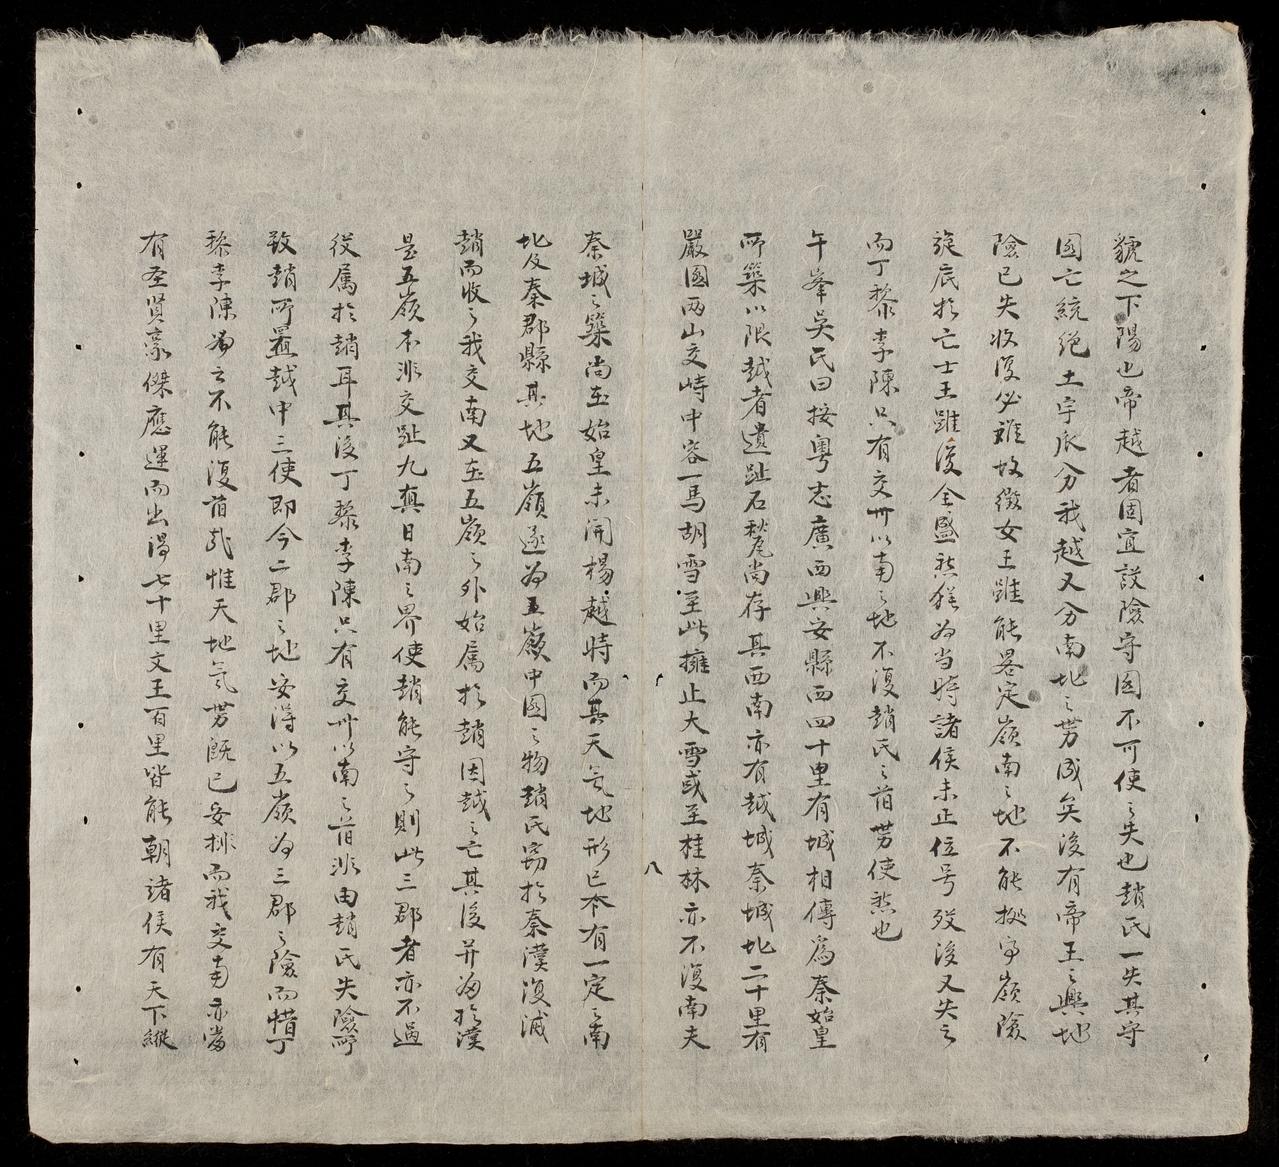 虢之下陽也帝越者固宜設險守國不可使之失也趙氏一失其守
國亡統絕土宇瓜分我越又分南北之势成矣後有帝王之興地
險已失收復必難故徵女王雖能畧定嶺南之地不能扼守嶺險
旋底於亡士王雖復全盛然猶为当時諸侯未正位号殁後又失之
而丁黎李陳只有交州以南之地不復趙氏之旧势使然也
午峯吳氏曰按粵志廣西興安縣西四十里有城相傳爲秦始皇
所築以限越者遺趾石甃尚存其西南亦有越城秦城北二十里有
嚴國两山交峙中容一馬胡雪至此擁止大雪或至桂林亦不復南夫
秦城之築尚在始皇未開楊越時而其天气地形已本有一定之南
北及秦郡縣其地五嶺遂为五嶺中国之物趙氏窃於秦漢復滅
趙而收之我交南又在五嶺之外始属於趙因越之亡其後并为於漢
是五嶺本非交趾九真日南之界使趙能守之則此三郡者亦不過
役属於趙耳其後丁黎李陳只有交州以南之旧非由趙氏失險所
致趙所置越中三使即今二郡之地安得以五嶺为三郡之險而惜丁
黎李陳为之不能復旧哉惟天地气势既已安排而我交南亦当
有圣贤豪傑應運而出湯七十里文王百里皆能朝諸侯有天下縱
八